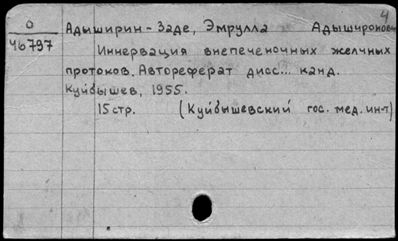 4
О
46797
Адыширин-Заде, Эмрулла Адыширонович
Иннервация внепеченочных желчных
протоков. Автореферат дисс... канд.
Куйбышев, 1955.
15 стр. (Куйбышевский гос. мед. ин-т)